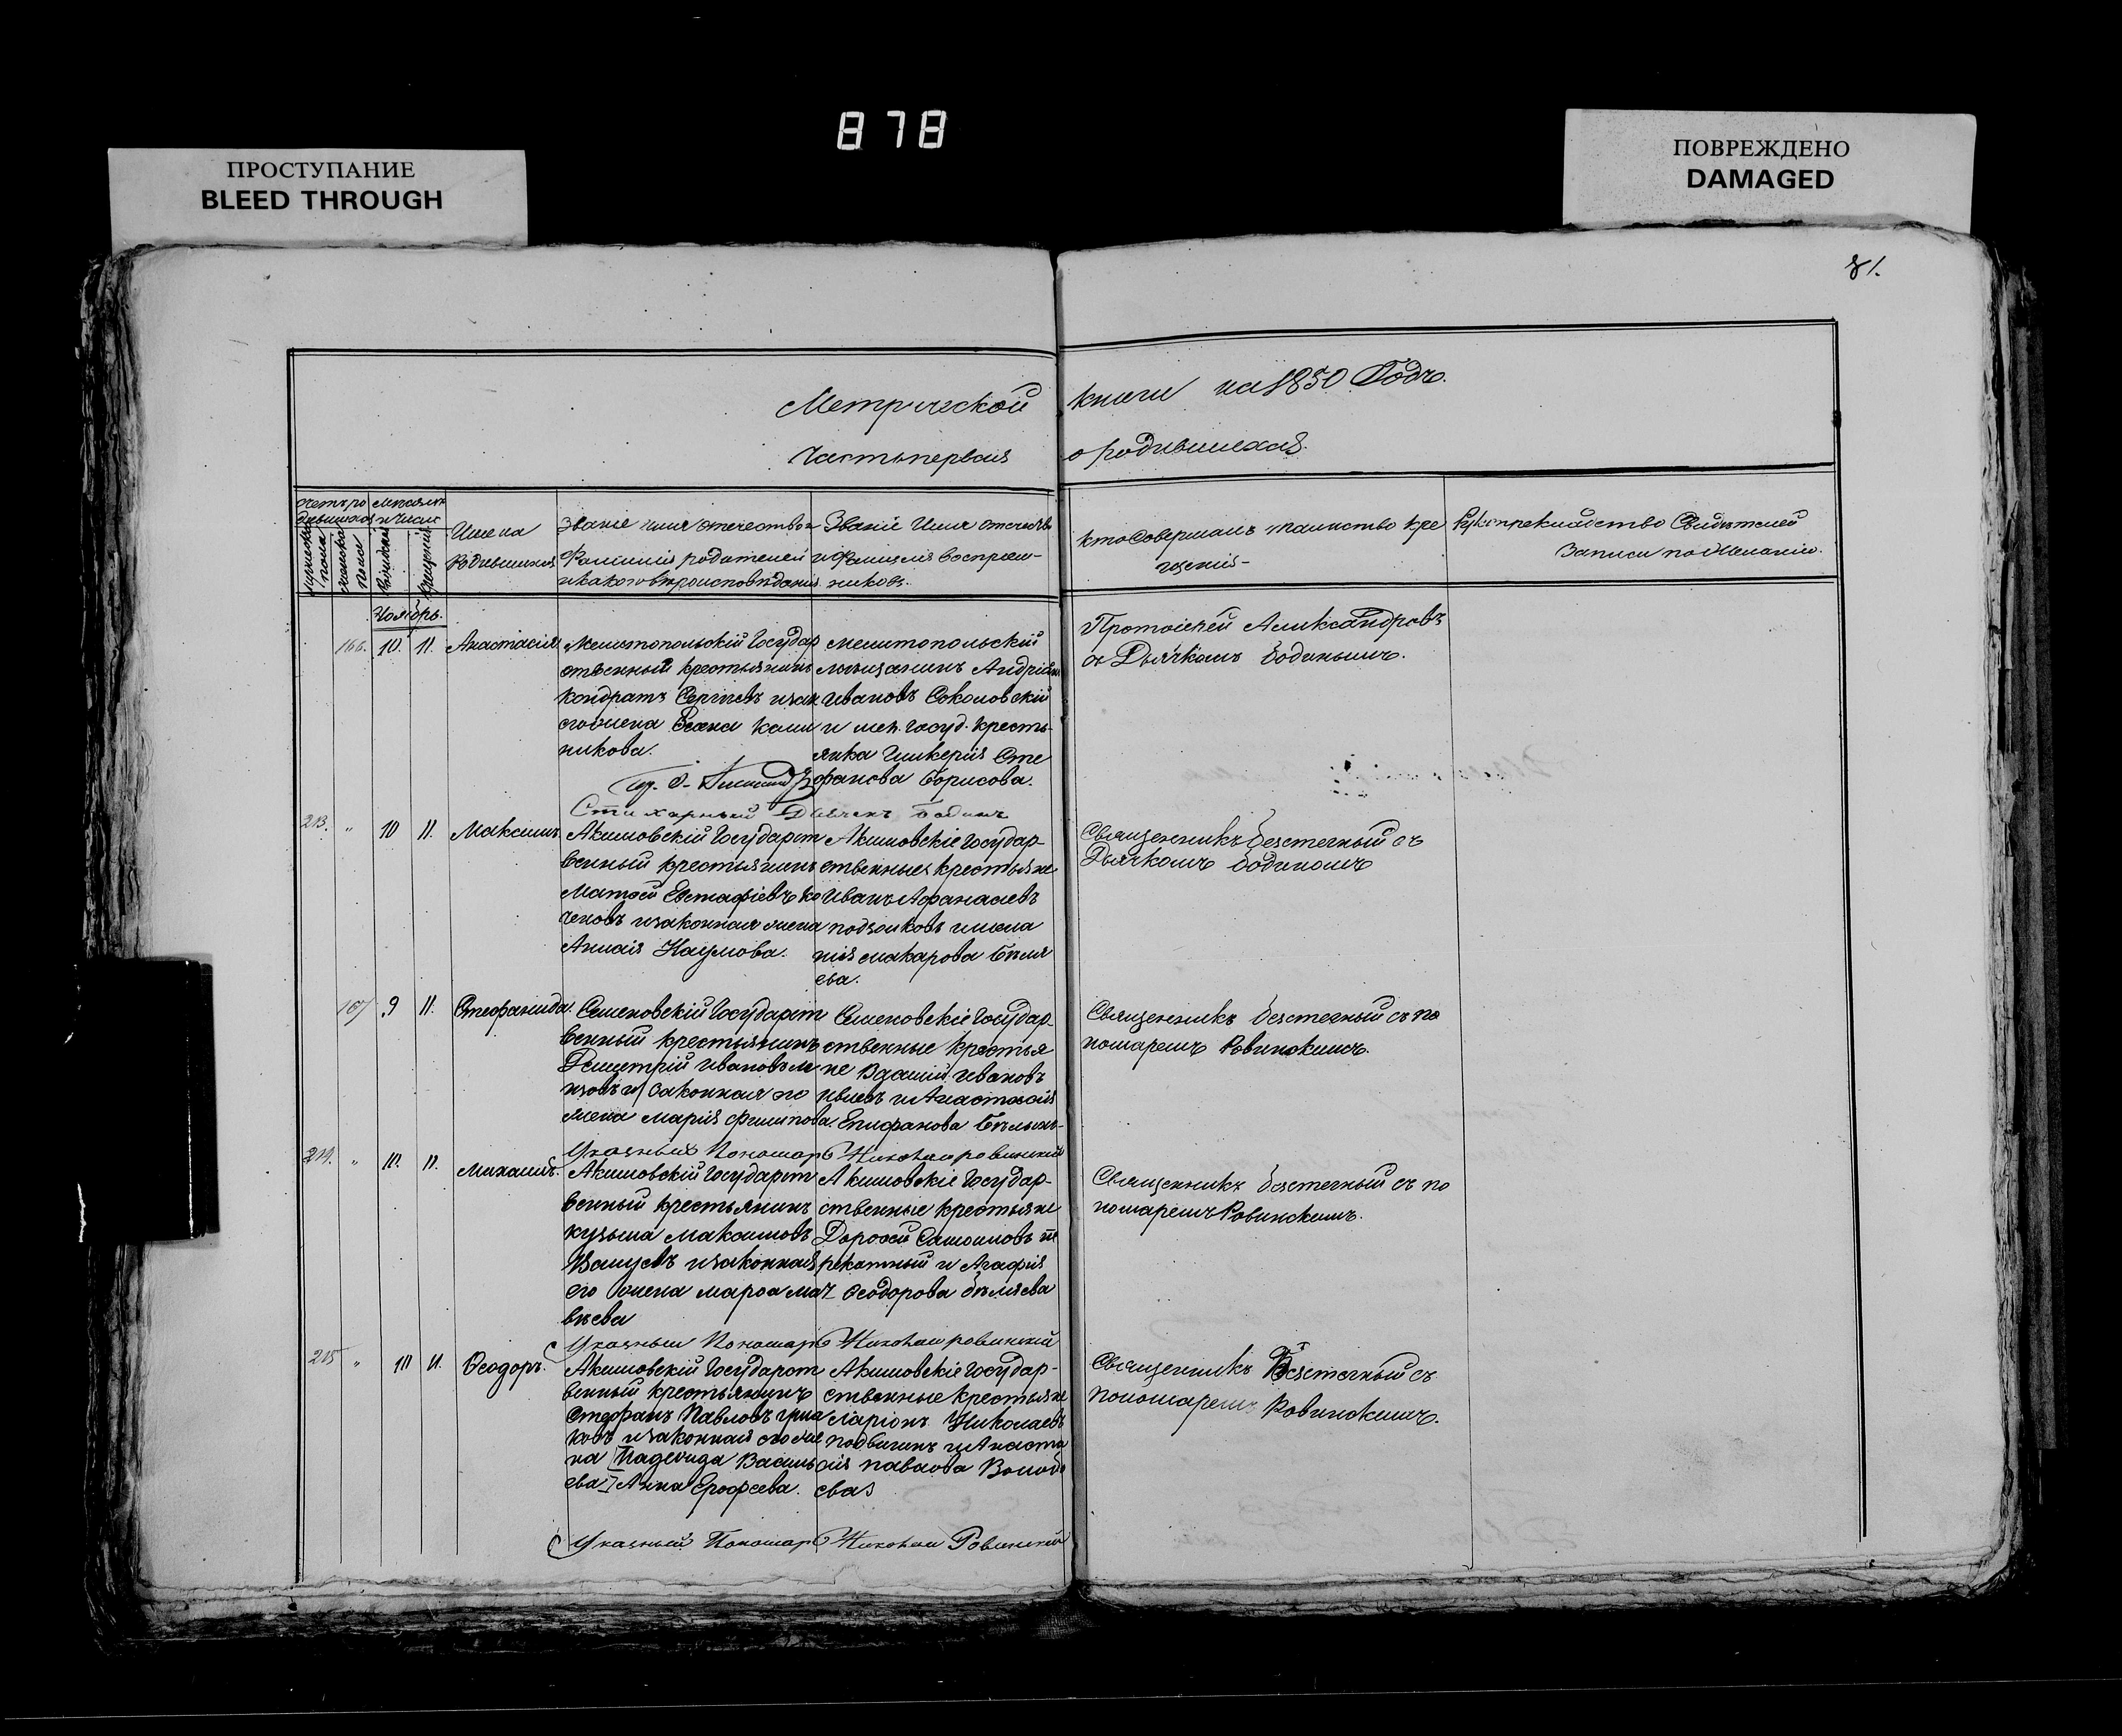 878
ПРОСТУПАНИЕ
BLEED THROUGH
ПОВРЕЖДЕНО
DAMAGED
81.
Метрической книги на 1850 Годъ.
Часть первая о родившихся.
Счетъ ро
дившихся
Мужеска
пола
Женска
пола
Мѣсяцъ
и число
Рожденія
Крещенія
Имена
Родившихся
Званіе имя отечество и
Фамилія родителей
и какого вѣроисповѣданія
Званіе Имя отечество
и Фамилія воспріем-
никовъ.
кто Совершалъ таинство кре
щенія-
Рукоприкладство Свидѣтелей
Записи по желанію.
Ноябрь.
166. 10. 11. Анастасія
Мелитопольскій Государ
ственный крестьянинъ
Кондратъ Сергѣевъ и зак
его жена Ксенія Кали
никова.
Мелитопольскій
мѣщанинъ Андріанъ
Ивановъ Соколовскій
и мел. госуд. кресть-
янка Гликерія Сте
фанова Борисова.
Протоіерей Александровъ
съ Дьячкомъ Бодинымъ.
Стихарный Дьячекъ Бодинъ
213. " 10 11. Максимъ
Акимовскій Государст
венный крестьянинъ
Матѳей Евстафіевъ Ко
ченовъ и законная жена
Анна Наумова.
Акимовскіе Государ-
ственные крестьяне
Иванъ Афанасьевъ
макарова Бѣля
ева.
Священникъ Безстечный съ
Дьячкомъ Бодиномъ
167 9 11. Стефанида.
Семеновскій Государст
венный крестьянинъ
Димитрій Ивановъ
законная его
жена Марія Филипова.
Семеновскіе Государ-
ственные крестья
не Ивановъ
и Анастасія
Епифанова
Священникъ Безстечный съ по
номаремъ Ровинскимъ.
Указный Пономарь Николай Ровинскій
214. " 10. 11. Михаилъ.
Акимовскій Государст
венный крестьянинъ
кузьма Максимовъ
и законная
его жена марѳа мат
вѣева
Акимовскіе Государ-
ственные крестьяне
Дороѳей Самойловъ пе
рекатный и Агафія
Ѳеодорова бѣляева
Священникъ безстечный съ по
номаремъ Ровинскимъ.
Указный Пономарь Николай Ровинскій
215 " 10 11. Ѳеодоръ.
Акимовскій Государст
венный крестьянинъ
Стефанъ Павловъ
ковъ и законная его же
на [Надежда Василь
ева] Анна Ерофеева.
Акимовскіе Государ-
ственные крестьяне
Ларіонъ Николаевъ
и Анаста
сія павлова
ева
Священникъ Безстечный съ
пономаремъ Ровинскимъ.
Указный Пономарь Николай Ровинскій